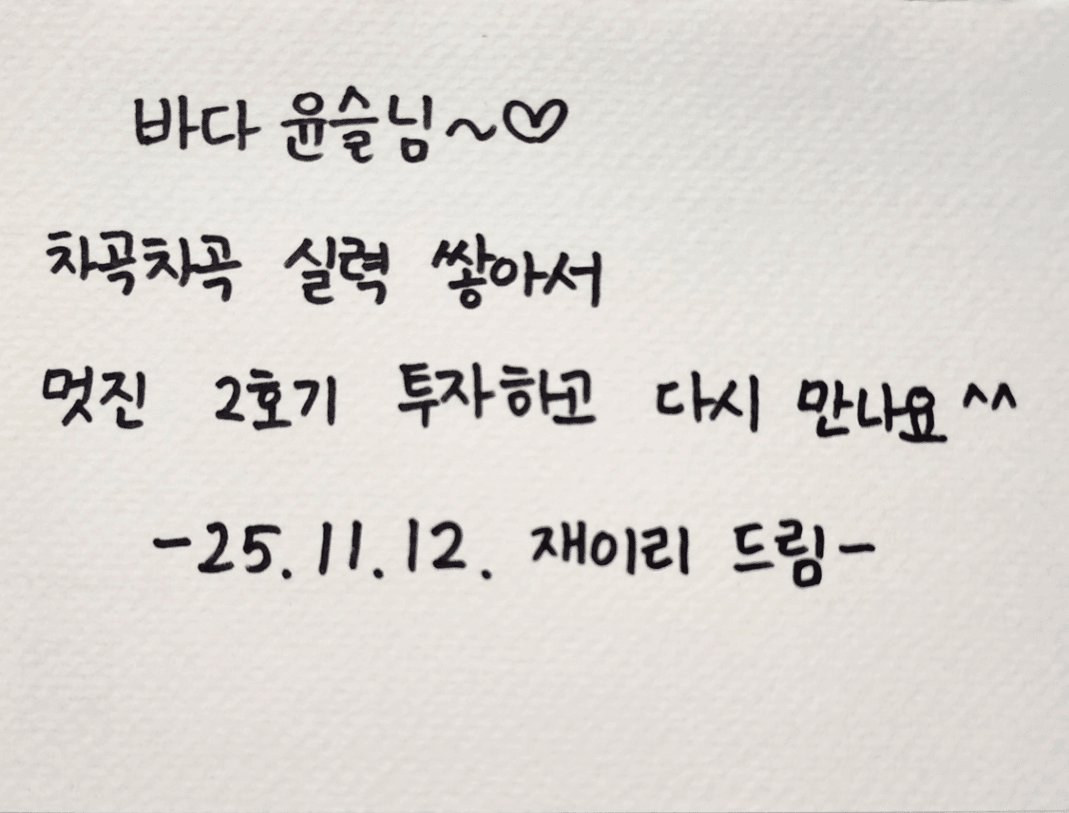 바다 윤슬님~♡
차곡차곡 실력 쌓아서
멋진 2호기 투자하고 다시 만나요^^
-25.11.12. 재이리 드림-